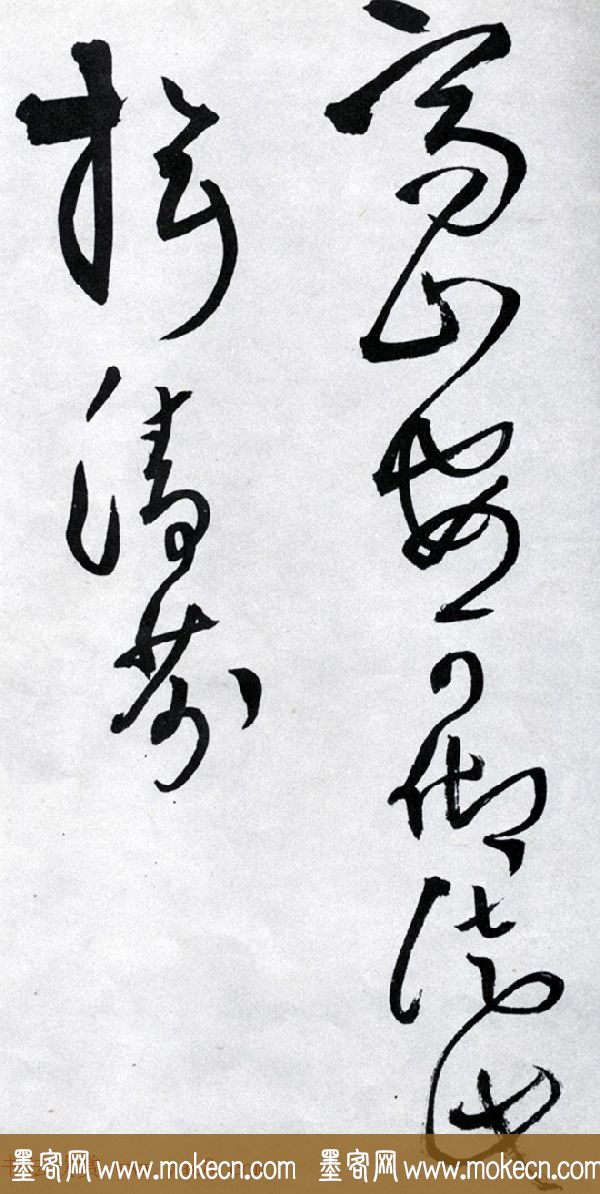 高山安可仰徒此
揖清芬
墨客网 www.mokecn.com 墨客网 www.mokecn.com